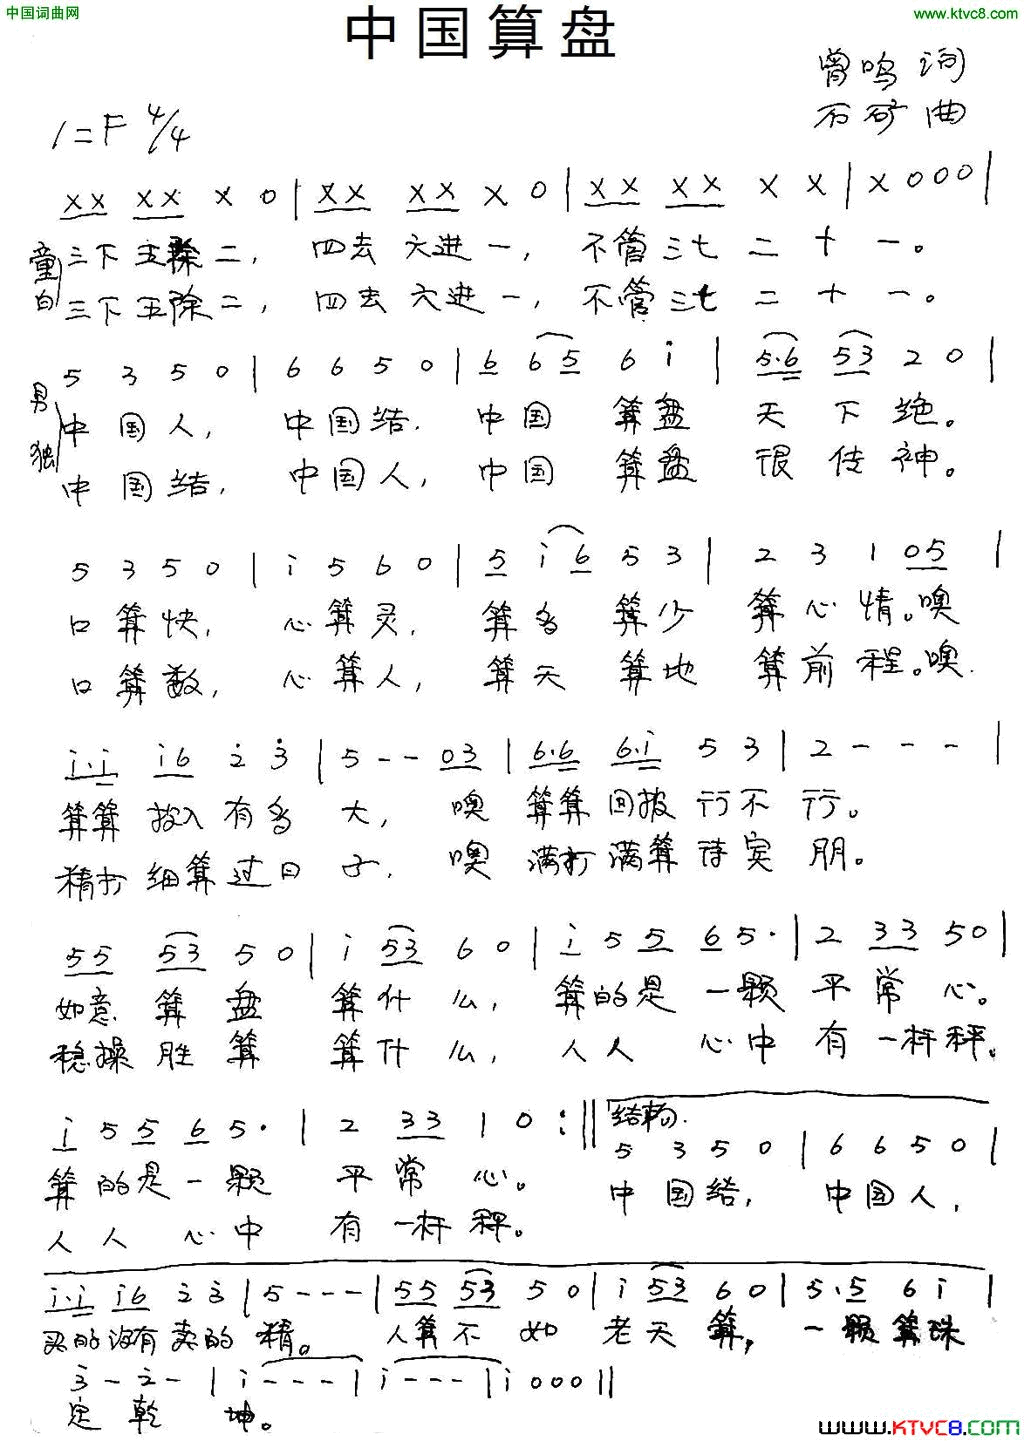 中国词曲网
www.ktvc8.com
中国算盘
曾鸣 词
石矿 曲
1=F 4/4
X X X X X 0 | X X X X X 0 | X X X X X X | X 0 0 0 |
童白
三下五除二，四去六进一，不管三七二十一。
三下五除二，四去六进一，不管三七二十一。
5 3 5 0 | 6 6 5 0 | 6 6 5 6 i | 5·6 5 3 2 0 |
男独
中国人，中国结，中国算盘天下绝。
中国结，中国人，中国算盘很传神。
5 3 5 0 | i 5 6 0 | 5 i 6 5 3 | 2 3 1 0 5 |
口算快，心算灵，算多算少算心情。噢
口算数，心算人，算天算地算前程。噢
i·i i 6 2 3 | 5 - - 0 3 | 6·6 6·i 5 3 | 2 - - - |
算算投入有多大，噢算算回报行不行。
精打细算过日子，噢满打满算待宾朋。
5 5 5 3 5 0 | i 5 3 6 0 | i 5 5 6 5· | 2 3 3 5 0 |
如意算盘算什么，算的是一颗平常心。
稳操胜算算什么，人人心中有一杆秤。
i 5 5 6 5· | 2 3 3 1 0 :‖ 结构. 5 3 5 0 | 6 6 5 0 |
算的是一颗平常心。中国结，中国人，
人人心中有一杆秤。
i·i i 6 2 3 | 5 - - - | 5 5 5 3 5 0 | i 5 3 6 0 | 5·5 6 i |
买的没有卖的精。人算不如老天算，一颗算珠
3 - 2 - | i - - - | i - - - | i 0 0 0 ‖
定乾坤。
www.KTVC8.com